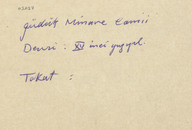 güdük Minare Camii
Devri : XV inci yüzyıl.
Tokat :